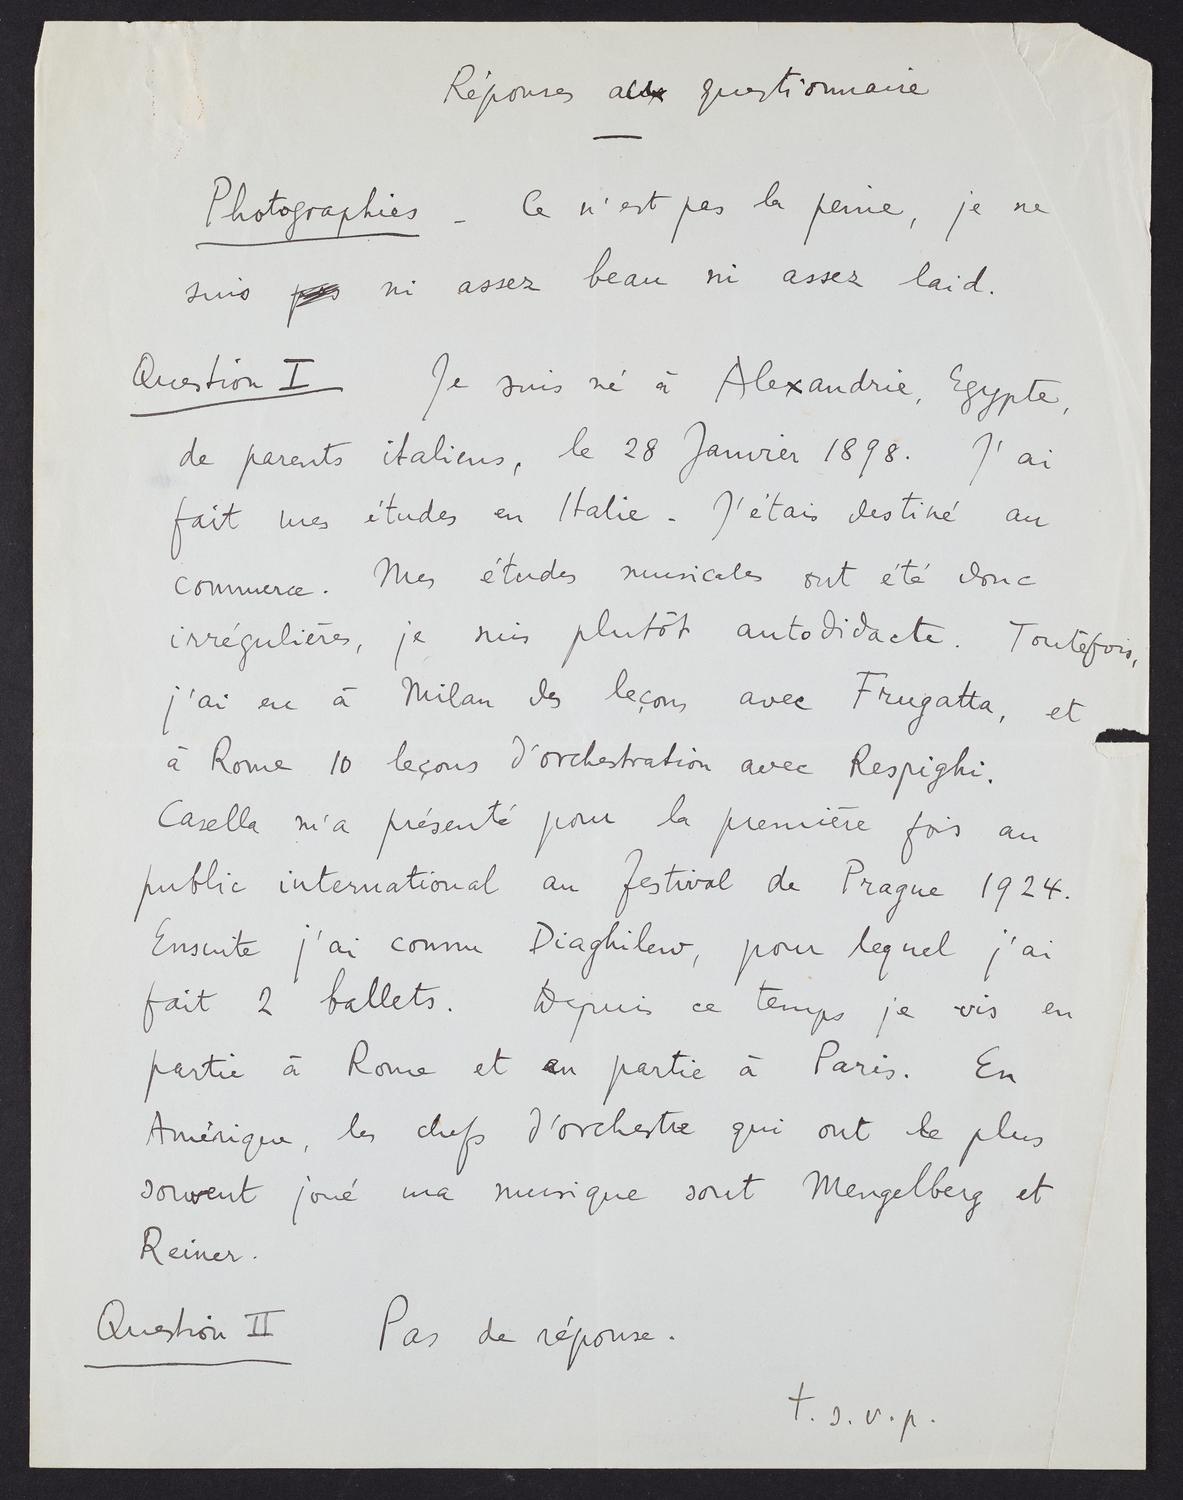 Réponses aux questionnaire
Photographies - Ce n'est pas la peine, je ne
suis pas ni assez beau ni assez laid.
Question I Je suis né à Alexandrie, Egypte,
de parents italiens, le 28 Janvier 1898. J'ai
fait mes études en Italie - J'étais destiné au
commerce. Mes études musicales ont été donc
irrégulières, je suis plutôt autodidacte. Toutefois,
j'ai eu à Milan des leçons avec Frugatta, et
à Rome 10 leçons d'orchestration avec Respighi.
Casella m'a présenté pour la première fois au
public international au festival de Prague 1924.
Ensuite j'ai connu Diaghilew, pour lequel j'ai
fait 2 ballets. Depuis ce temps je vis en
partie à Rome et en partie à Paris. En
Amérique, les chefs d'orchestre qui ont le plus
souvent joué ma musique sont Mengelberg et
Reiner.
Question II Pas de réponse.
t.s.v.p.